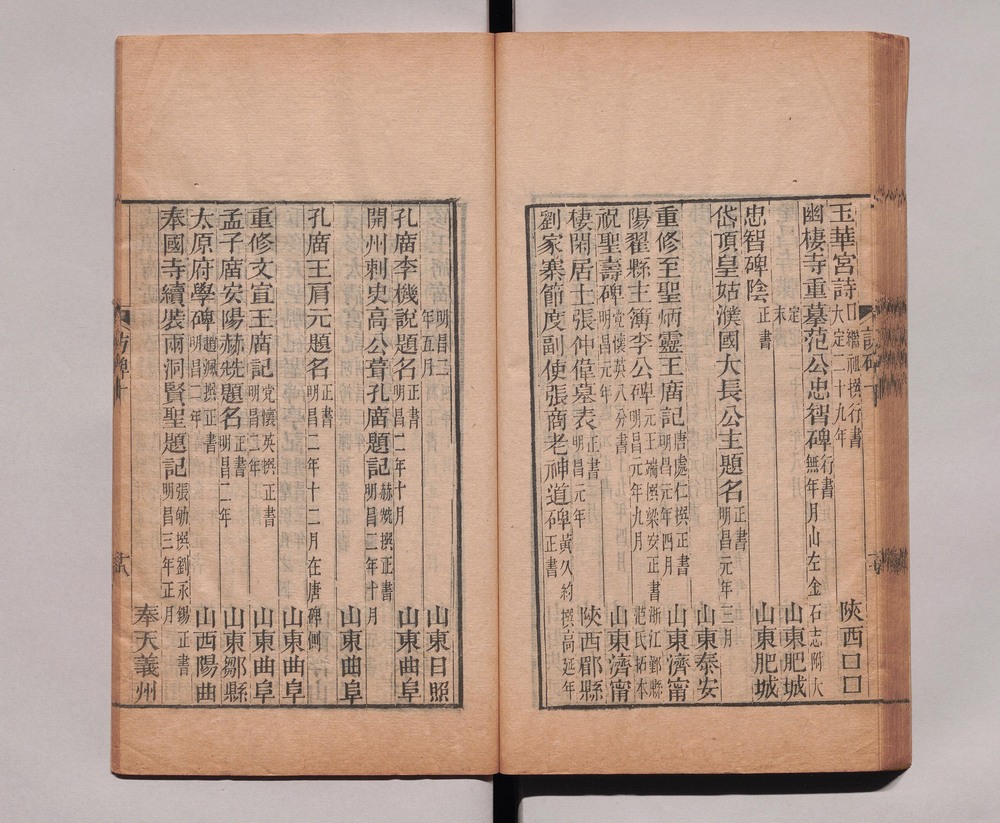 玉華宮詩
口繼祖撰行書
大定二十九年
陝西口口
幽棲寺重墓范公忠智碑
行書
無年月山左金石志附大
定
末
山東肥城
忠智碑陰
正書
山東肥城
岱頂皇姑濮國大長公主題名
正書
明昌元年三月
山東泰安
重修至聖炳靈王庿記
唐處仁撰正書
明昌元年四月
山東濟甯
陽翟縣主簿李公碑
元王端撰梁安正書
明昌元年九月
浙江鄞縣
范氏拓本
祝聖壽碑
党懷英八分書
明昌元年
山東濟甯
棲閑居士張仲偉墓表
正書
明昌元年
陝西郿縣
劉家寨節度副使張商老神道碑
黃久約撰高延年
正書
明昌二
年五月
山東日照
孔庿李機說題名
正書
明昌二年十月
山東曲阜
開州刺史高公葺孔庿題記
赫兟撰正書
明昌二年十月
山東曲阜
孔庿王肩元題名
正書
明昌二年十二月在唐碑側
山東曲阜
重修文宣王庿記
党懷英撰正書
明昌二年
山東曲阜
孟子庿安陽赫兟題名
正書
明昌二年
山東鄒縣
太原府學碑
趙渢撰正書
明昌二年
山西陽曲
奉國寺續裝兩洞賢聖題記
張劭撰劉永錫正書
明昌三年正月
奉天義州